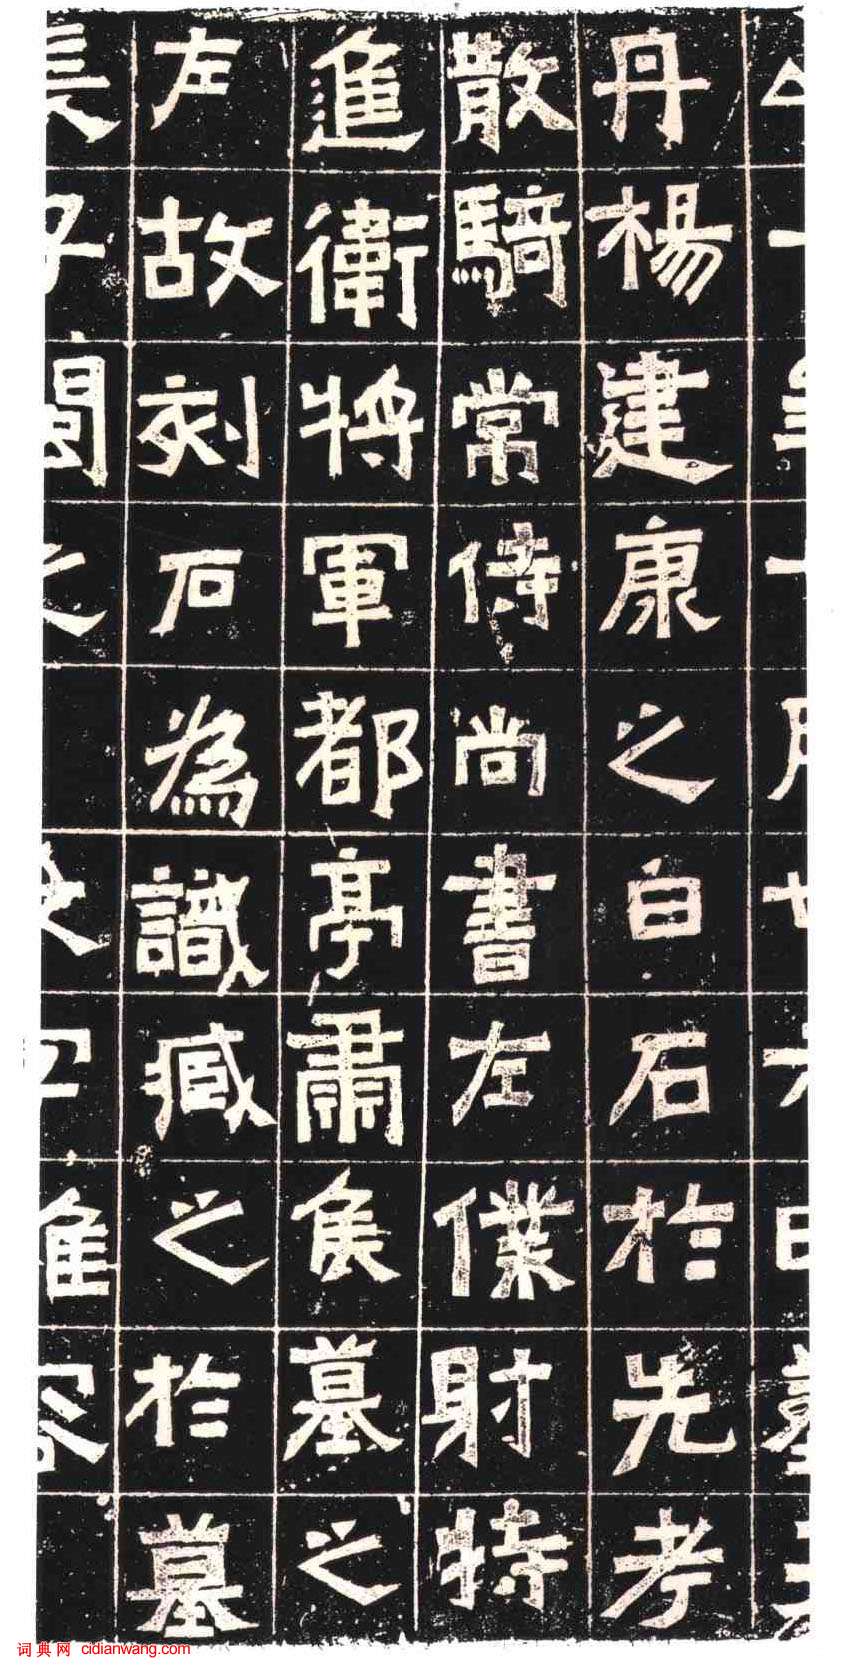 丹楊建康之白石於先考
散騎常侍尚書左僕射特
進衛將軍都亭肅侯墓之
左故刻石為識臧之於墓
词典网 cidianwang.com